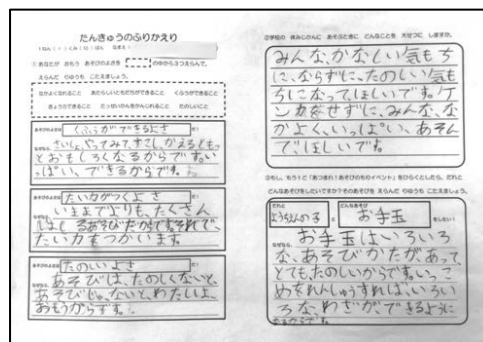 たんきゅうのふりかえり
1ねん( )くみ( )ばん なまえ
①あなたが おもう あそびのよさを の中から3つえらんで、
えらんだ りゆうも こたえましょう。
なかよくなれること あたらしいともだちができること くふうができること
きょうりょくできること たっせいかんをかんじれること たのしいこと
あそびのよさは くふうができるよさ だ!
なぜなら、さいしょ、やってみて、すこしかえるともっ
とおもしろくなるからです。い
っぱい、できるからです。
あそびのよさは たい力がつくよさ だ!
なぜなら、いままでよりも、たくさん
はしるあそびだからです。それで、
たい力をつかいます。
あそびのよさは たのしいよさ だ!
なぜなら、あそびは、たのしくないと、
あそびじゃ、ないと、わたしは、
おもうからです。
②学校の 休みじかんに あそぶときに どんなことを 大せつに しますか。
みんな、かなしい気もち
に、ならずに、たのしい気も
ちになってほしいです。ケ
ンカをせずに、みんな、な
かよく、いっぱい、あそん
で、ほしいです。
③もし、もう1ど「あつまれ!あそびのもりイベント」をひらくとしたら、だれと
どんなあそびをしたいですか?そのあそびを えらんだ りゆうも こたえましょう。
だれと ようちえんの子 と どんなあそび お手玉 をしたい!
なぜなら、お手玉はいろいろ
な、あそびかたが、あって、
とても、たのしいからです。いっこ
めをれんしゅうすれば、いろい
ろな、わざが、できるように
なるからです。